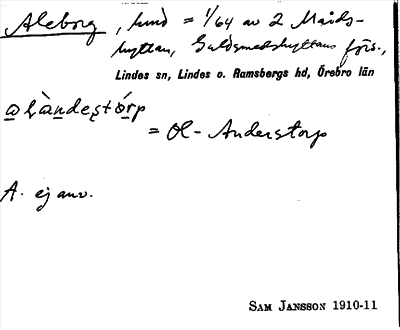 Aleborg, lund = 1/64 av 2 Mårds-
hyttan, Guldsmedshyttans förs.,
Lindes sn, Lindes o. Ramsbergs hd, Örebro län
= Ol-Anderstorp
A. ej anv.
SAM JANSSON 1910-11